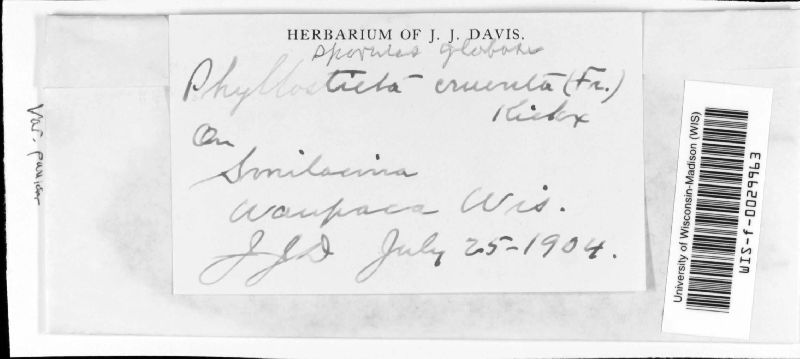 HERBARIUM OF J. J. DAVIS.
sporules globose
Phyllosticta cruenta (Fr.)
Kickx
On
Smilacina
Waupaca Wis.
JJD July 25-1904.
Var.
University of Wisconsin-Madison (WIS)
WIS-f-0029963